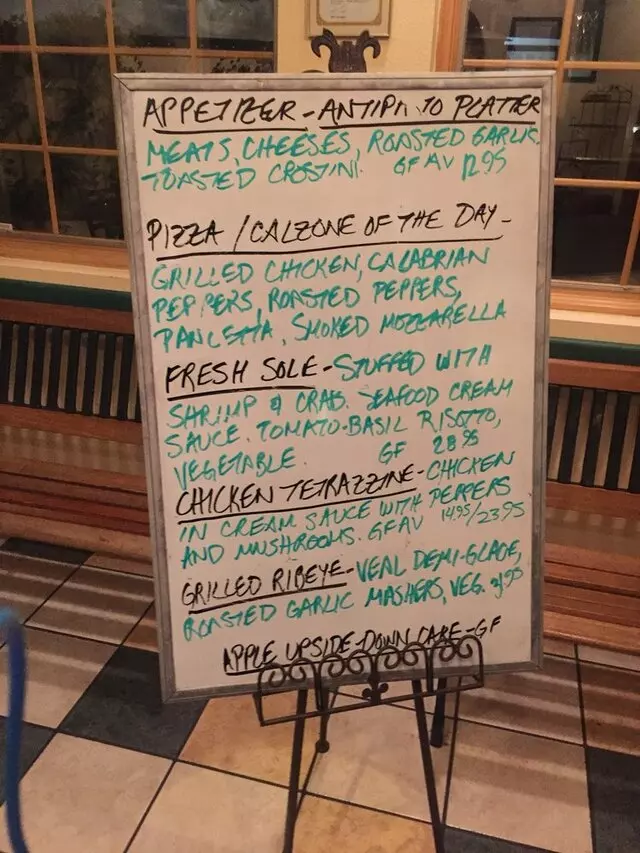 APPETIZER - ANTIPA TO PLATTER
MEATS, CHEESES, ROASTED GARLIC
TOASTED CROSTINI. GF AV 12.95
PIZZA / CALZONE OF THE DAY -
GRILLED CHICKEN, CALABRIAN
PEPPERS, ROASTED PEPPERS,
PANCETTA, SMOKED MOZZARELLA
FRESH SOLE - STUFFED WITH
SHRIMP & CRAB. SEAFOOD CREAM
SAUCE. TOMATO-BASIL RISOTTO,
VEGETABLE. GF 28.95
CHICKEN TETRAZZINE - CHICKEN
IN CREAM SAUCE WITH PEPPERS
AND MUSHROOMS. GF AV 14.95/23.95
GRILLED RIBEYE - VEAL DEMI-GLACE,
ROASTED GARLIC MASHERS, VEG.
APPLE UPSIDE-DOWN CAKE - GF